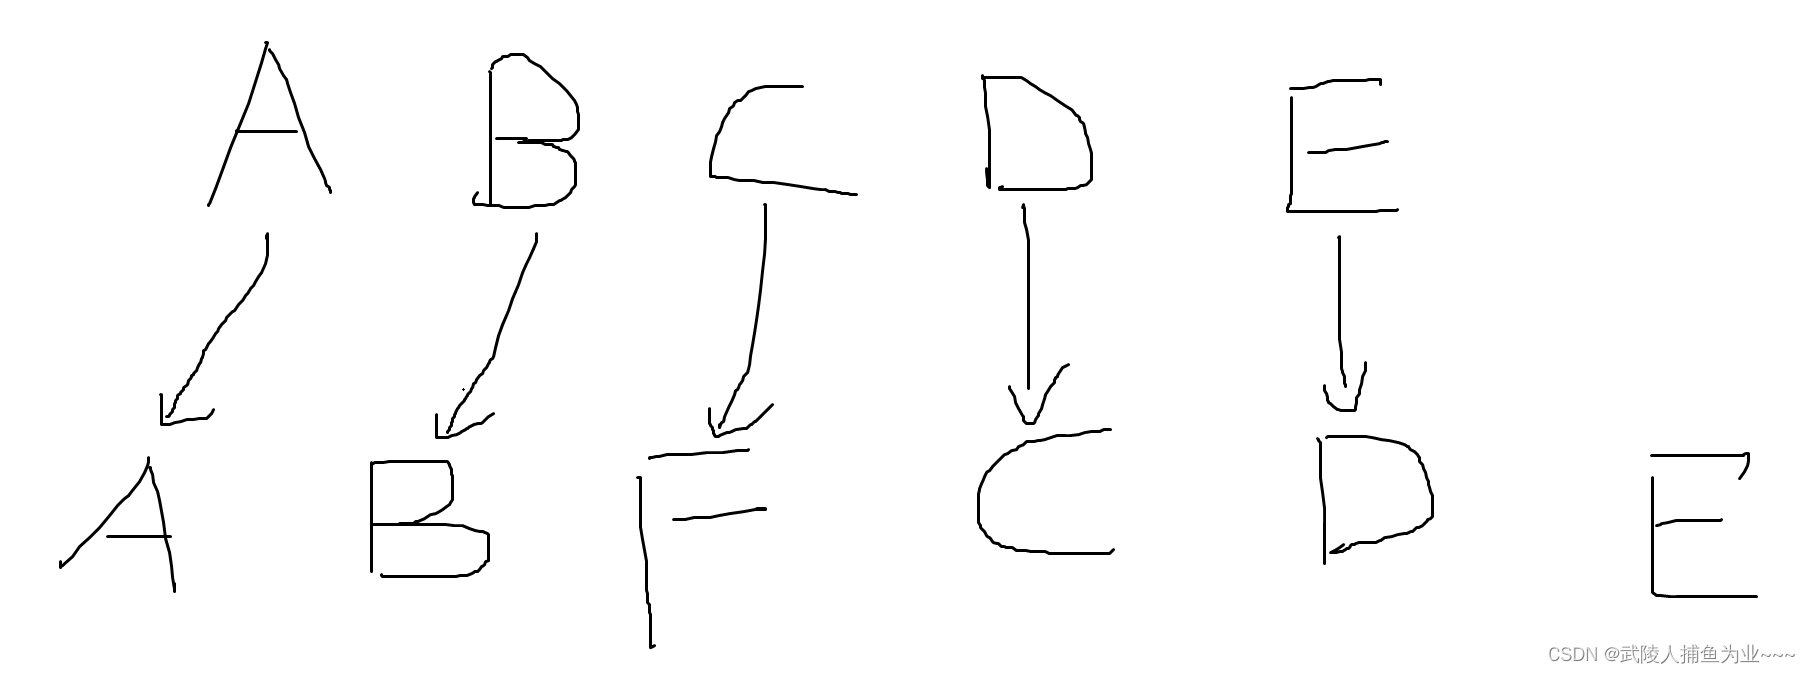 A B C D E
A B F C D E
CSDN @武陵人捕鱼为业~~~